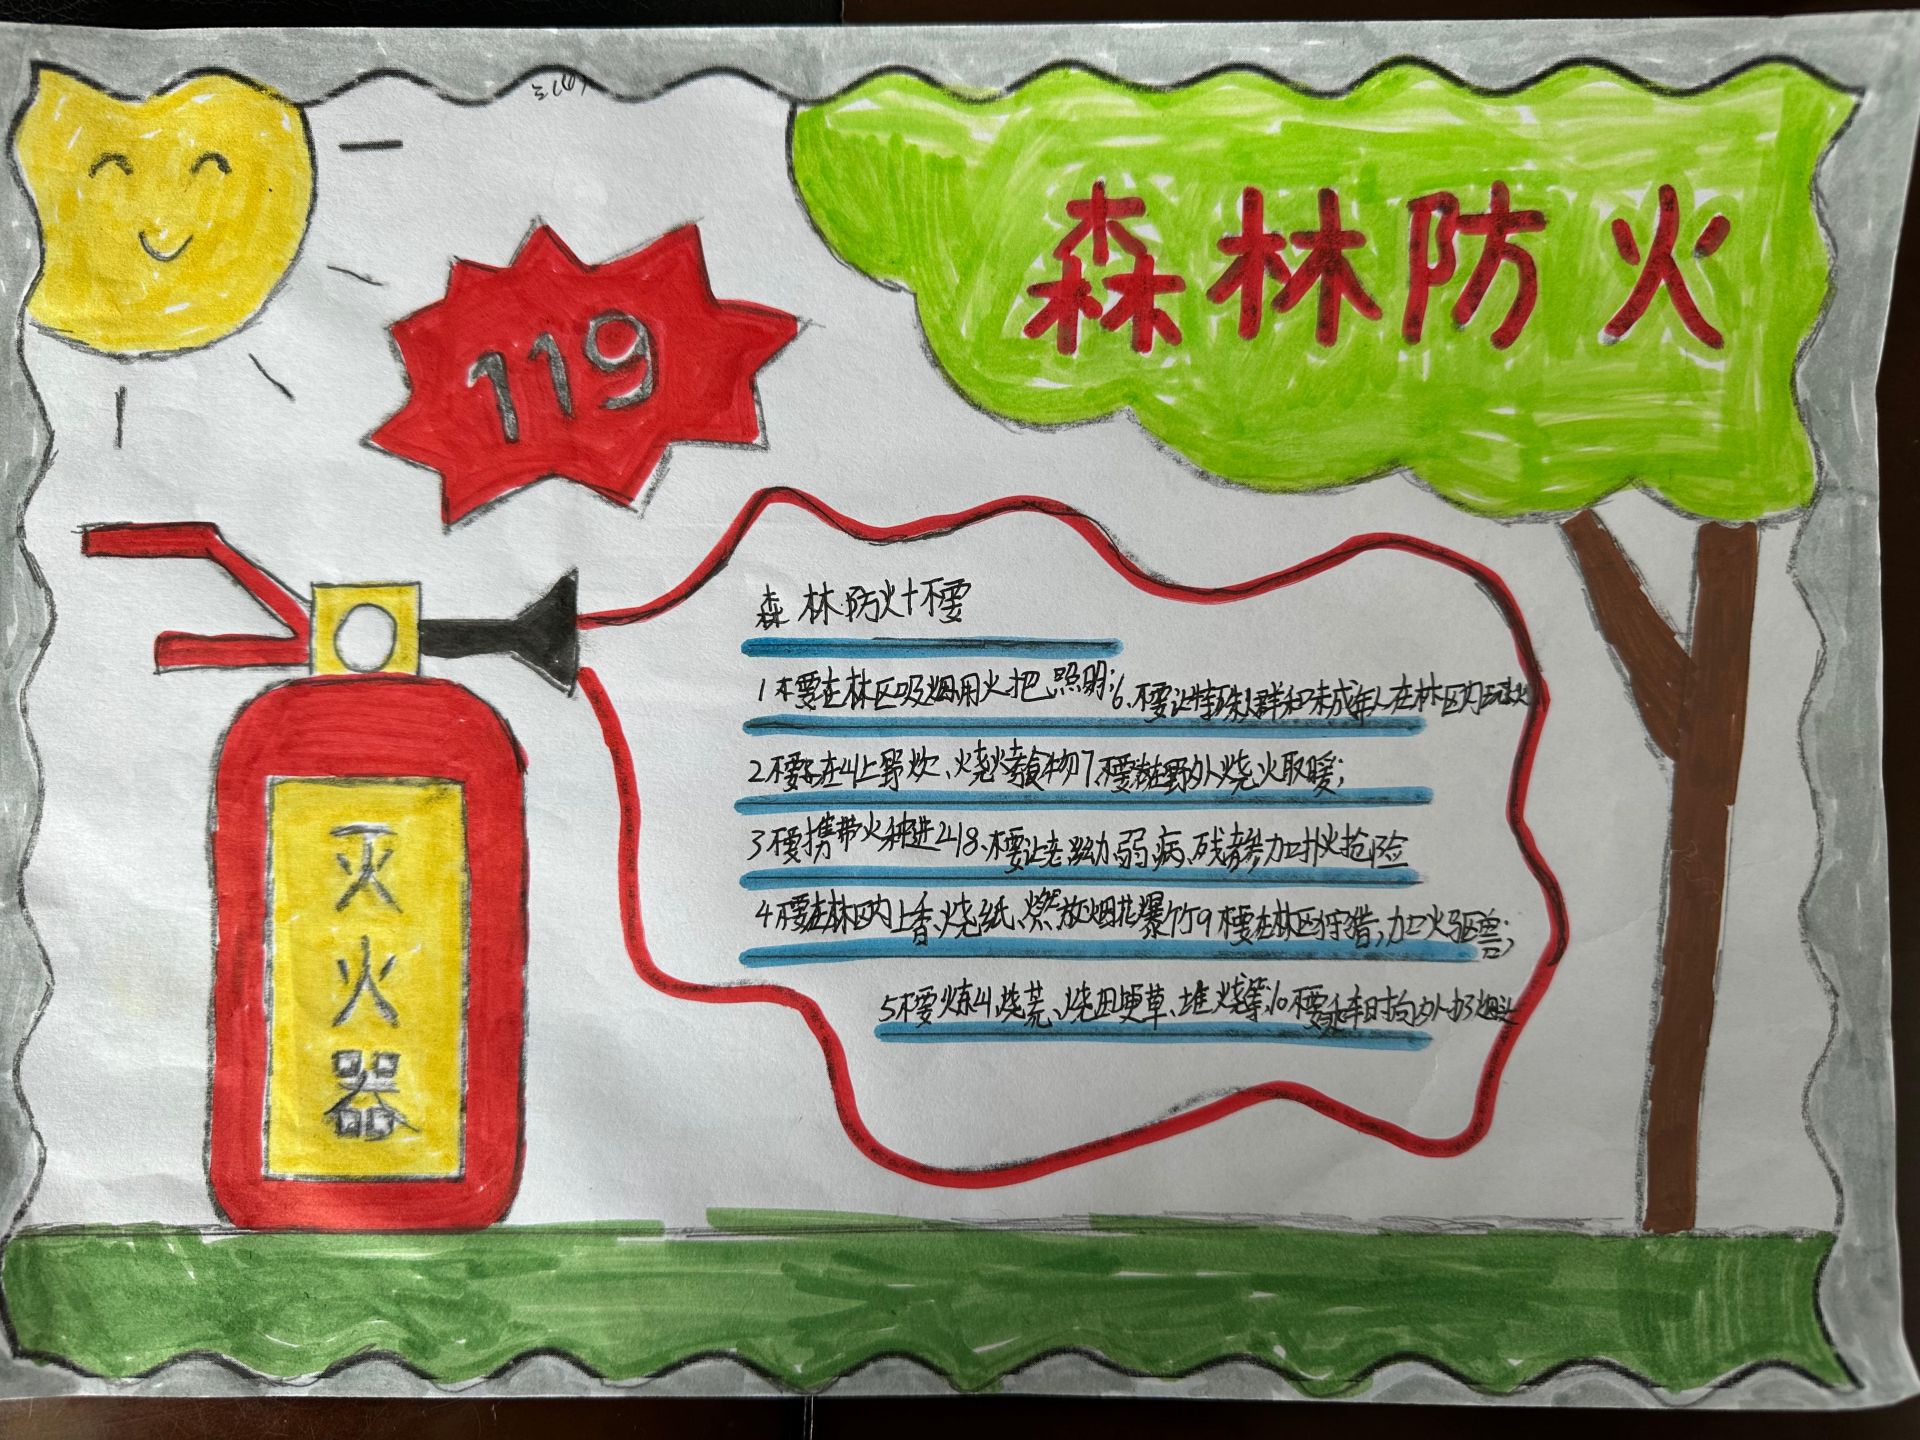 三(4)
森林防火
119
森林防火十不要
1不要在林区吸烟用火把、照明;6、不要让特殊人群和未成年人在林区内玩火
2不要在山上野炊、烧烤食物7、不要在野外烧火取暖;
3不要携带火种进山8、不要让老、幼、弱、病、残者参加扑火抢险
4不要在林区内上香、烧纸、燃放烟花爆竹9不要在林区狩猎,加火驱兽;
5不要炼山、烧荒、烧田埂草、堆烧等;10不要乘车时向外扔烟头
灭火器